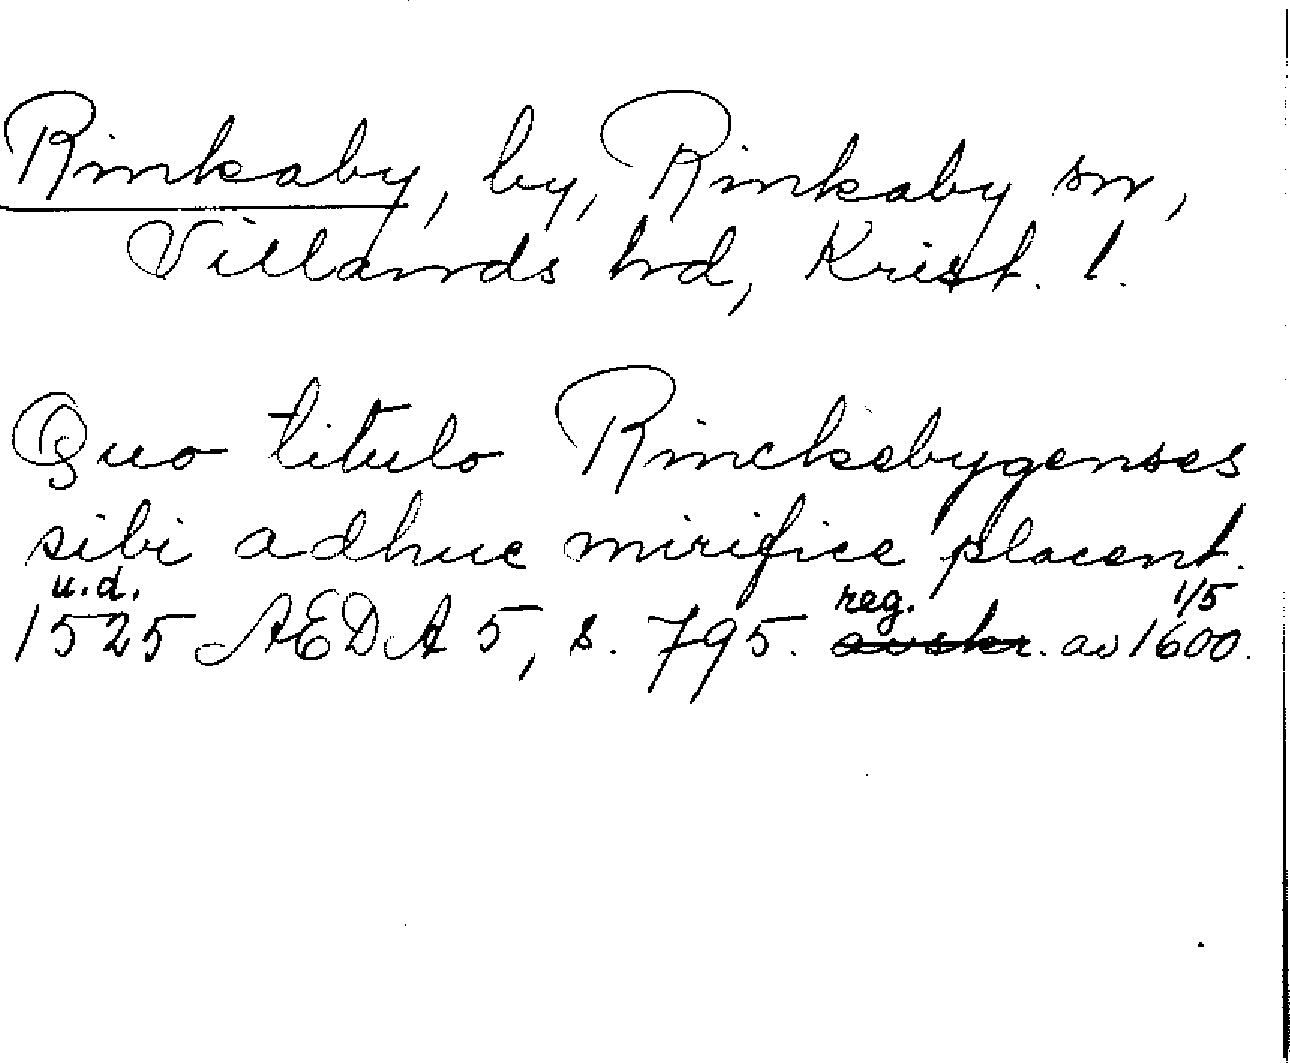 Rinkaby, by, Rinkaby sn,
Villands hd, Krist. l.
Quo titulo Rinckebygenses
sibi adhuc mirifice placent.
u.d. reg. 1/5
1525 AEDA 5, s. 795. avskr. av 1600.